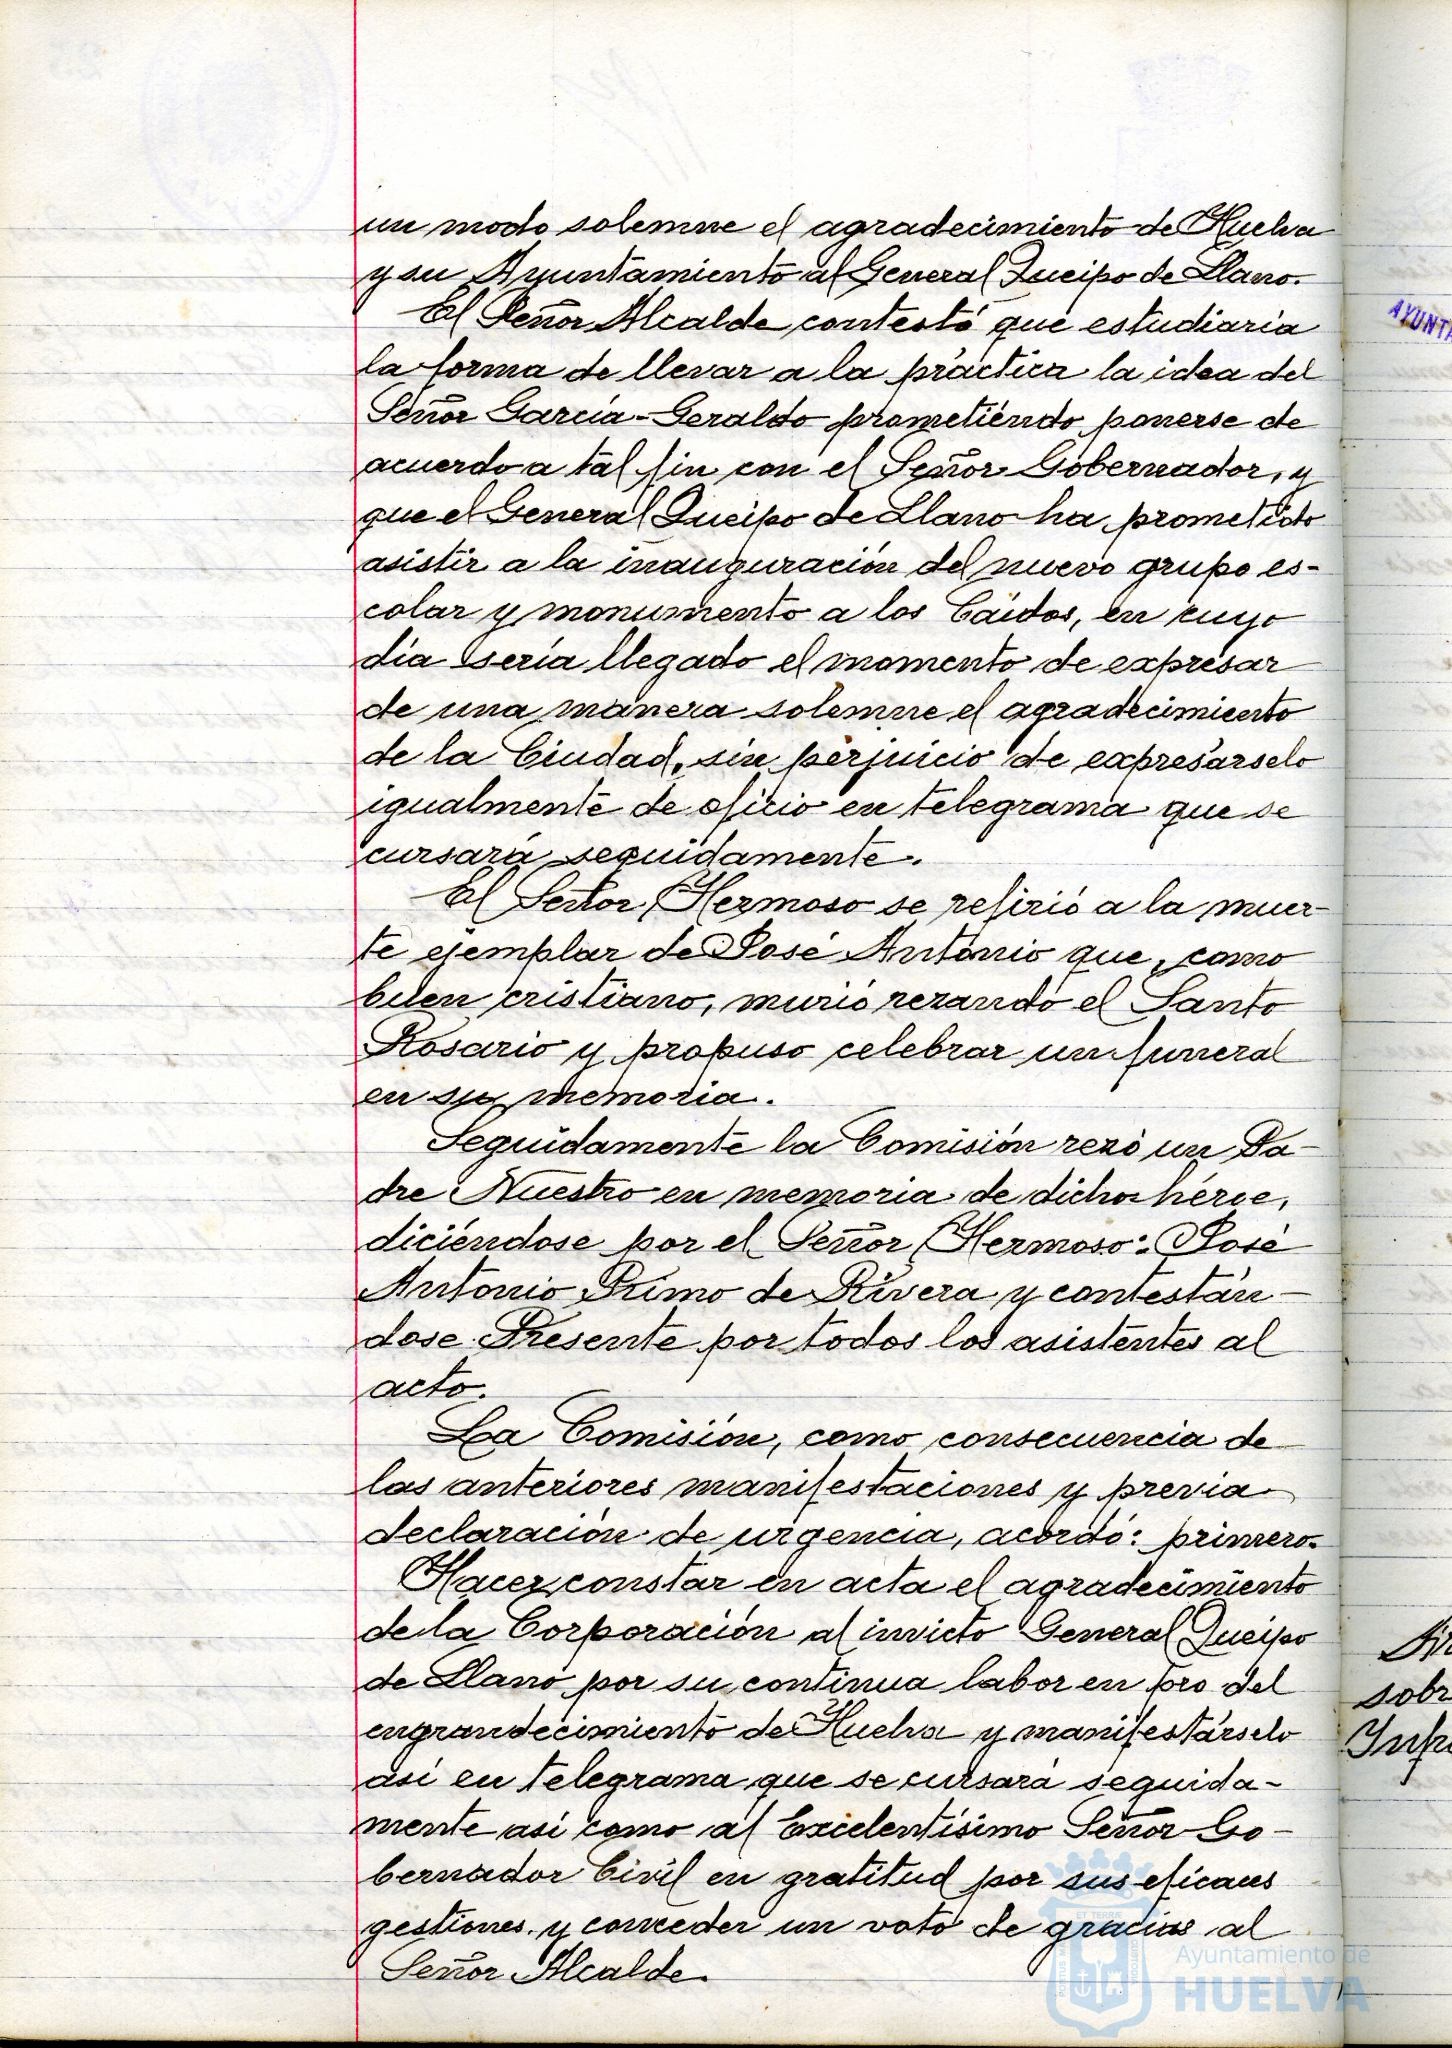 un modo solemne el agradecimiento de Huelva
y su Ayuntamiento al General Queipo de Llano.
El Señor Alcalde contestó que estudiaria
la forma de llevar a la práctica la idea del
Señor García-Geraldo prometiéndo ponerse de
acuerdo a tal fin con el Señor Gobernador, y
que el General Queipo de Llano ha prometido
asistir a la inauguración del nuevo grupo es-
colar y monumento a los Caídos, en cuyo
día sería llegado el momento de expresar
de una manera solemne el agradecimiento
de la Ciudad, sin perjuicio de expresárselo
igualmente de oficio en telegrama que se
cursará seguidamente.
El Señor Hermoso se refirió a la muer-
te ejemplar de José Antonio que, como
buen cristiano, murió rezando el Santo
Rosario y propuso celebrar un funeral
en su memoria.
Seguidamente la Comisión rezó un Pa-
dre Nuestro en memoria de dicho héroe,
diciéndose por el Señor Hermoso: José
Antonio Primo de Rivera y contestán-
dose Presente por todos los asistentes al
acto.
La Comisión, como consecuencia de
las anteriores manifestaciones y previa
declaración de urgencia, acordó: primero.
Hacer constar en acta el agradecimiento
de la Corporación al invicto General Queipo
de Llano por su continua labor en pro del
engrandecimiento de Huelva y manifestárselo
así en telegrama que se cursará seguida-
mente así como al Excelentísimo Señor Go-
bernador Civil en gratitud por sus eficaces
gestiones y conceder un voto de gracias al
Señor Alcalde.
AYUNTA
sobr
Ayuntamiento de
HUELVA